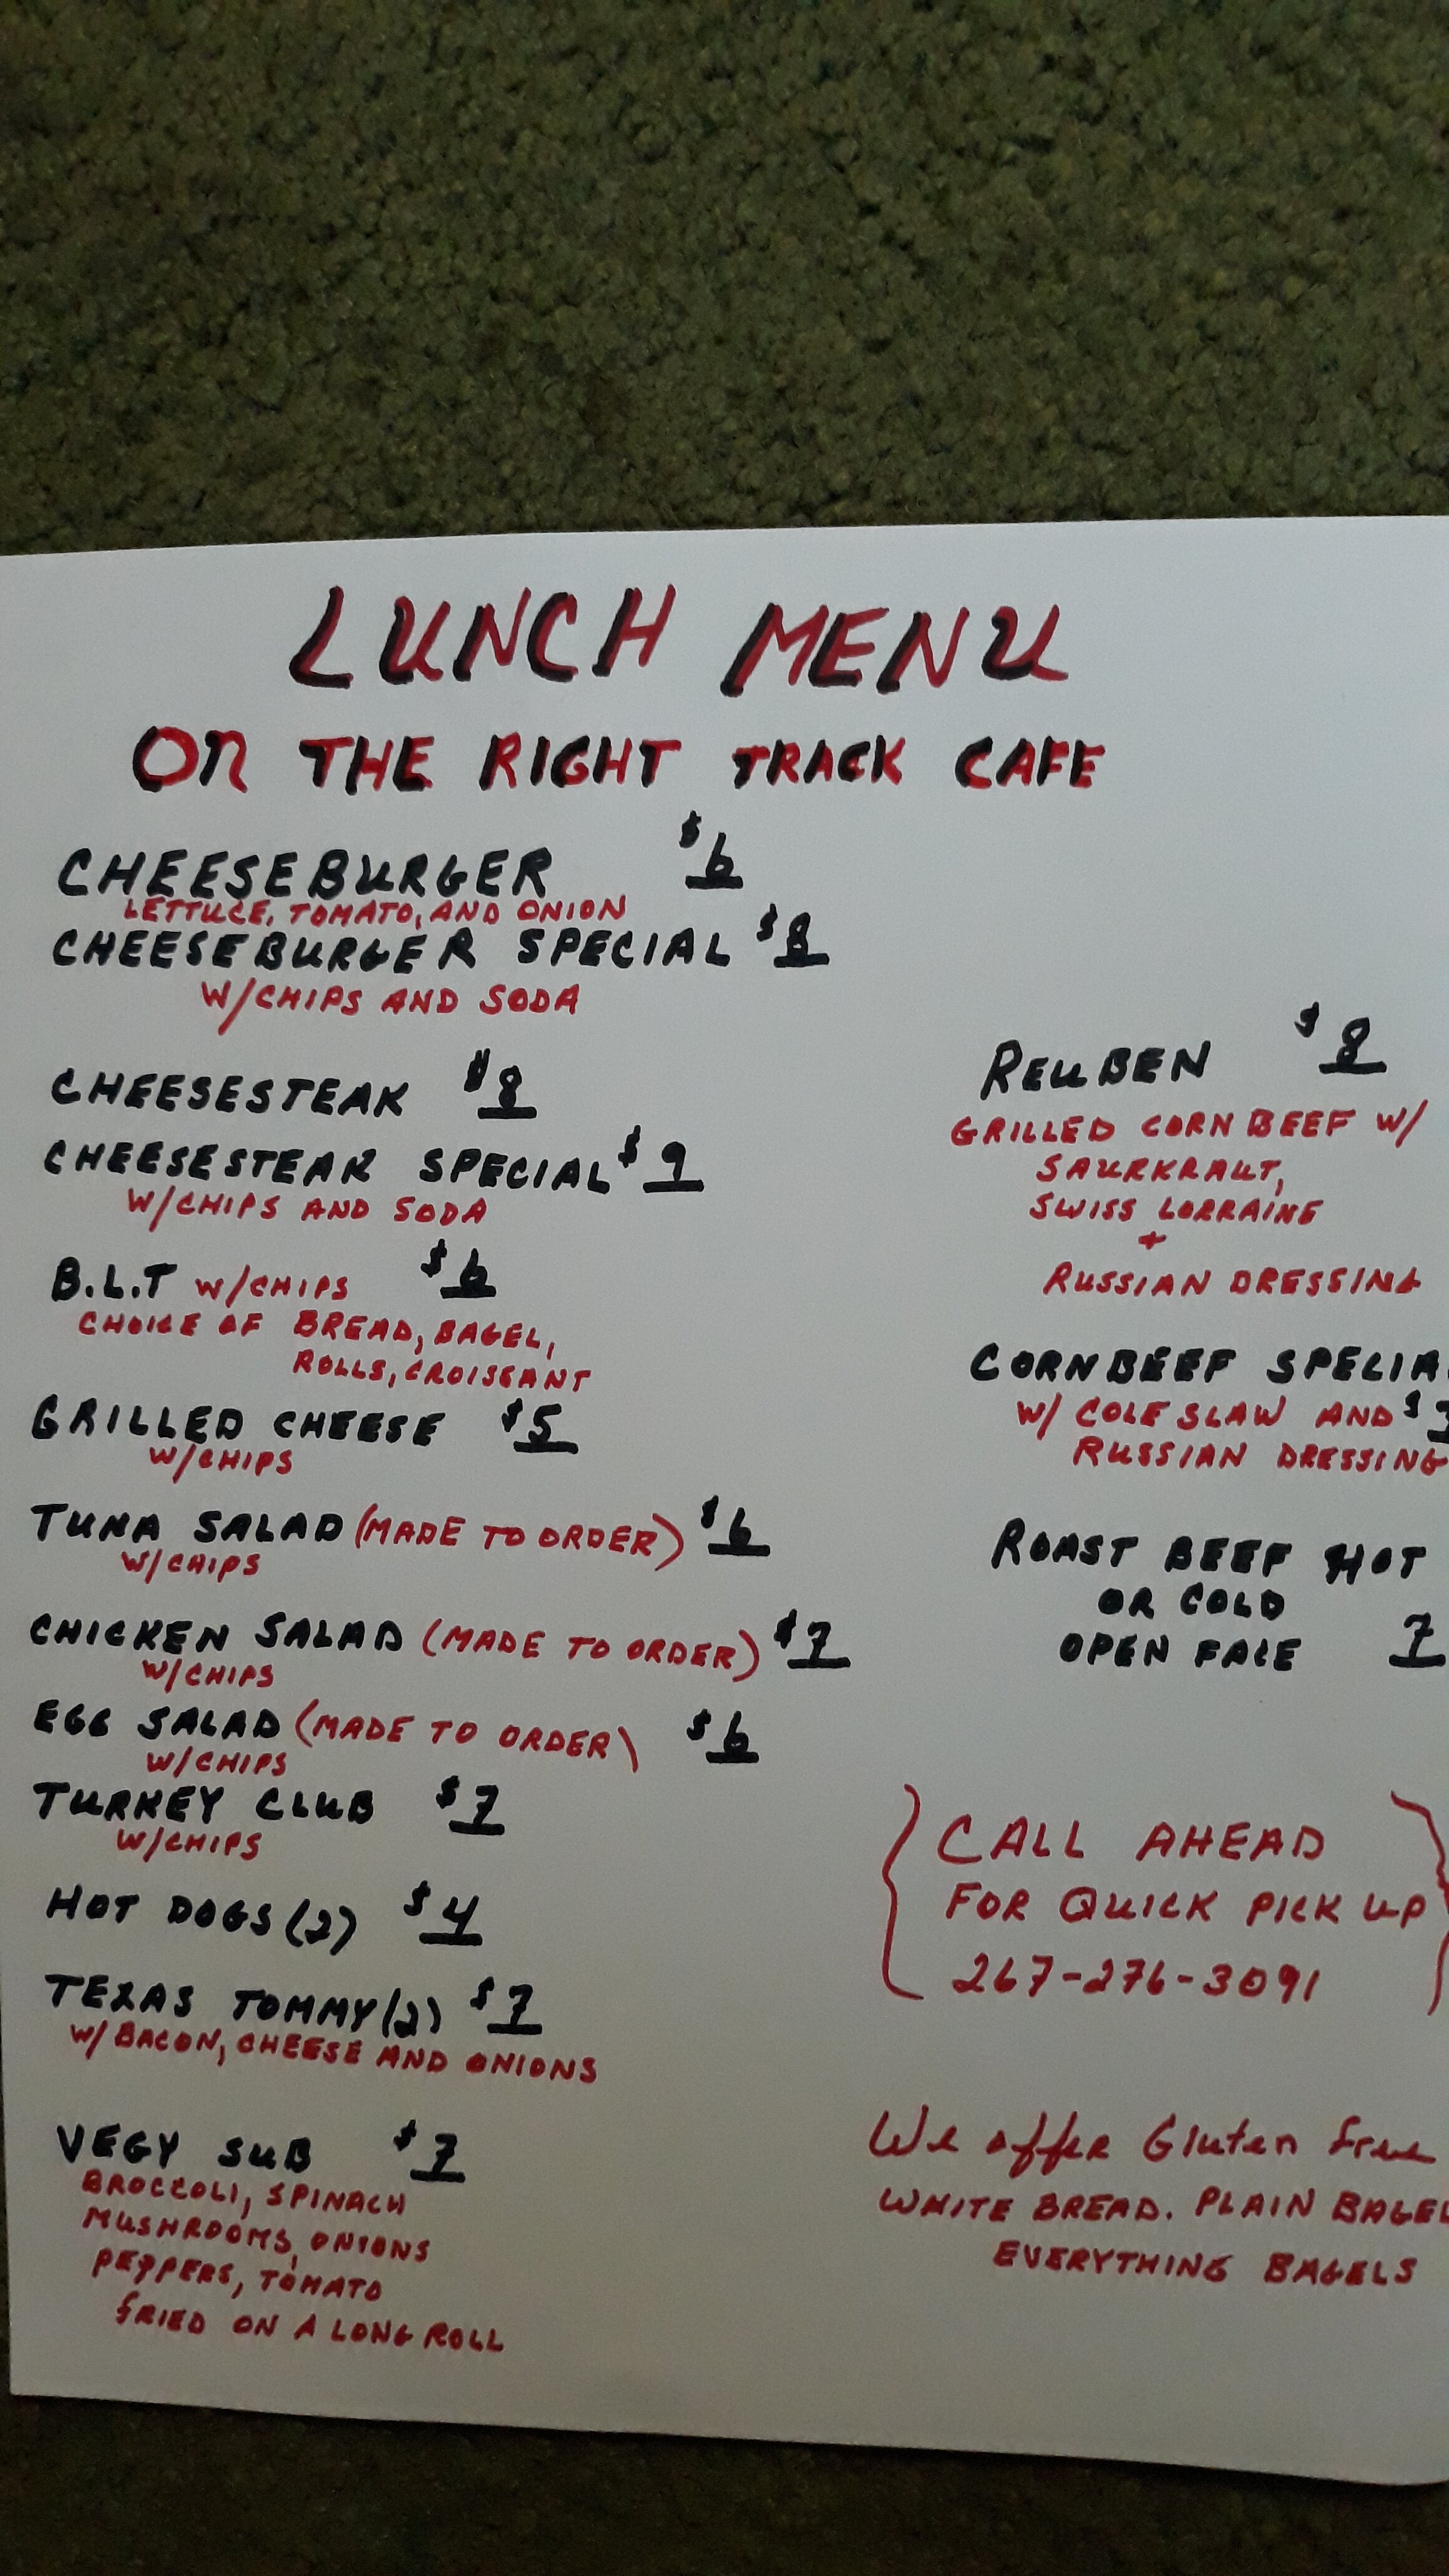 LUNCH MENU
ON THE RIGHT TRACK CAFE
CHEESEBURGER $6
LETTUCE, TOMATO, AND ONION
CHEESEBURGER SPECIAL $8
W/CHIPS AND SODA
CHEESESTEAK $8
CHEESESTEAK SPECIAL $9
W/CHIPS AND SODA
B.L.T W/CHIPS $6
CHOICE OF BREAD, BAGEL,
ROLLS, CROISSANT
GRILLED CHEESE $5
W/CHIPS
TUNA SALAD (MADE TO ORDER) $6
W/CHIPS
CHICKEN SALAD (MADE TO ORDER) $7
W/CHIPS
EGG SALAD (MADE TO ORDER) $6
W/CHIPS
TURKEY CLUB $7
W/CHIPS
HOT DOGS (2) $4
TEXAS TOMMY (2) $7
W/ BACON, CHEESE AND ONIONS
VEGY SUB $7
BROCCOLI, SPINACH
MUSHROOMS, ONIONS
PEPPERS, TOMATO
FRIED ON A LONG ROLL
REUBEN $8
GRILLED CORN BEEF W/
SAURKRAUT,
SWISS LORRAINE
+
RUSSIAN DRESSING
CORNBEEF SPECIA
W/ COLE SLAW AND $
RUSSIAN DRESSING
ROAST BEEF HOT
OR COLD
OPEN FACE 7
CALL AHEAD
FOR QUICK PICK UP
267-276-3091
We offer Gluten free
WHITE BREAD. PLAIN BAGEL
EVERYTHING BAGELS